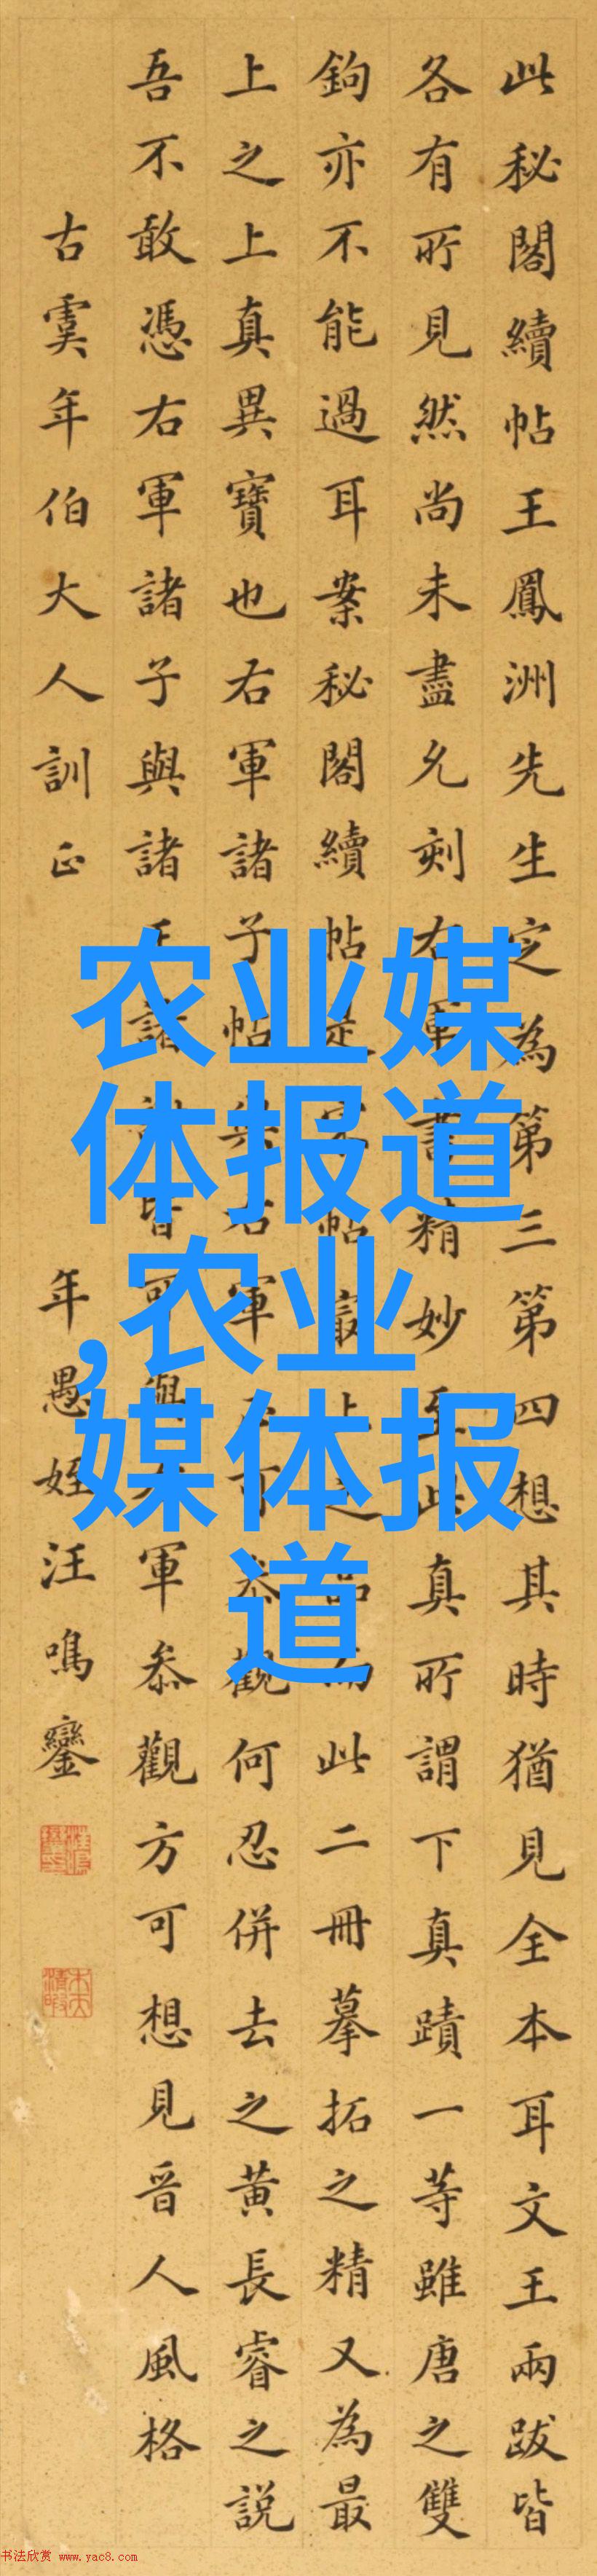 此秘閣續帖王鳳洲先生定為第三第四想其時猶見全本耳文王兩跋皆
各有所見然尚未盡允刻右軍書精妙至此真所謂下真蹟一等雖唐之雙
鉤亦不能過耳案秘閣續帖是宋帖最此二冊摹拓之精又為最
上之上真異寶也右軍諸子帖與右軍可叅觀何忍併去之黃長睿之説
吾不敢憑右軍諸子與諸王諸謝皆可與右軍叅觀方可想見晉人風格
古虞年伯大人訓正
年愚姪汪鳴鑾
农业媒
体报道
,农业
媒体报
道
书法欣赏 www.yac8.com